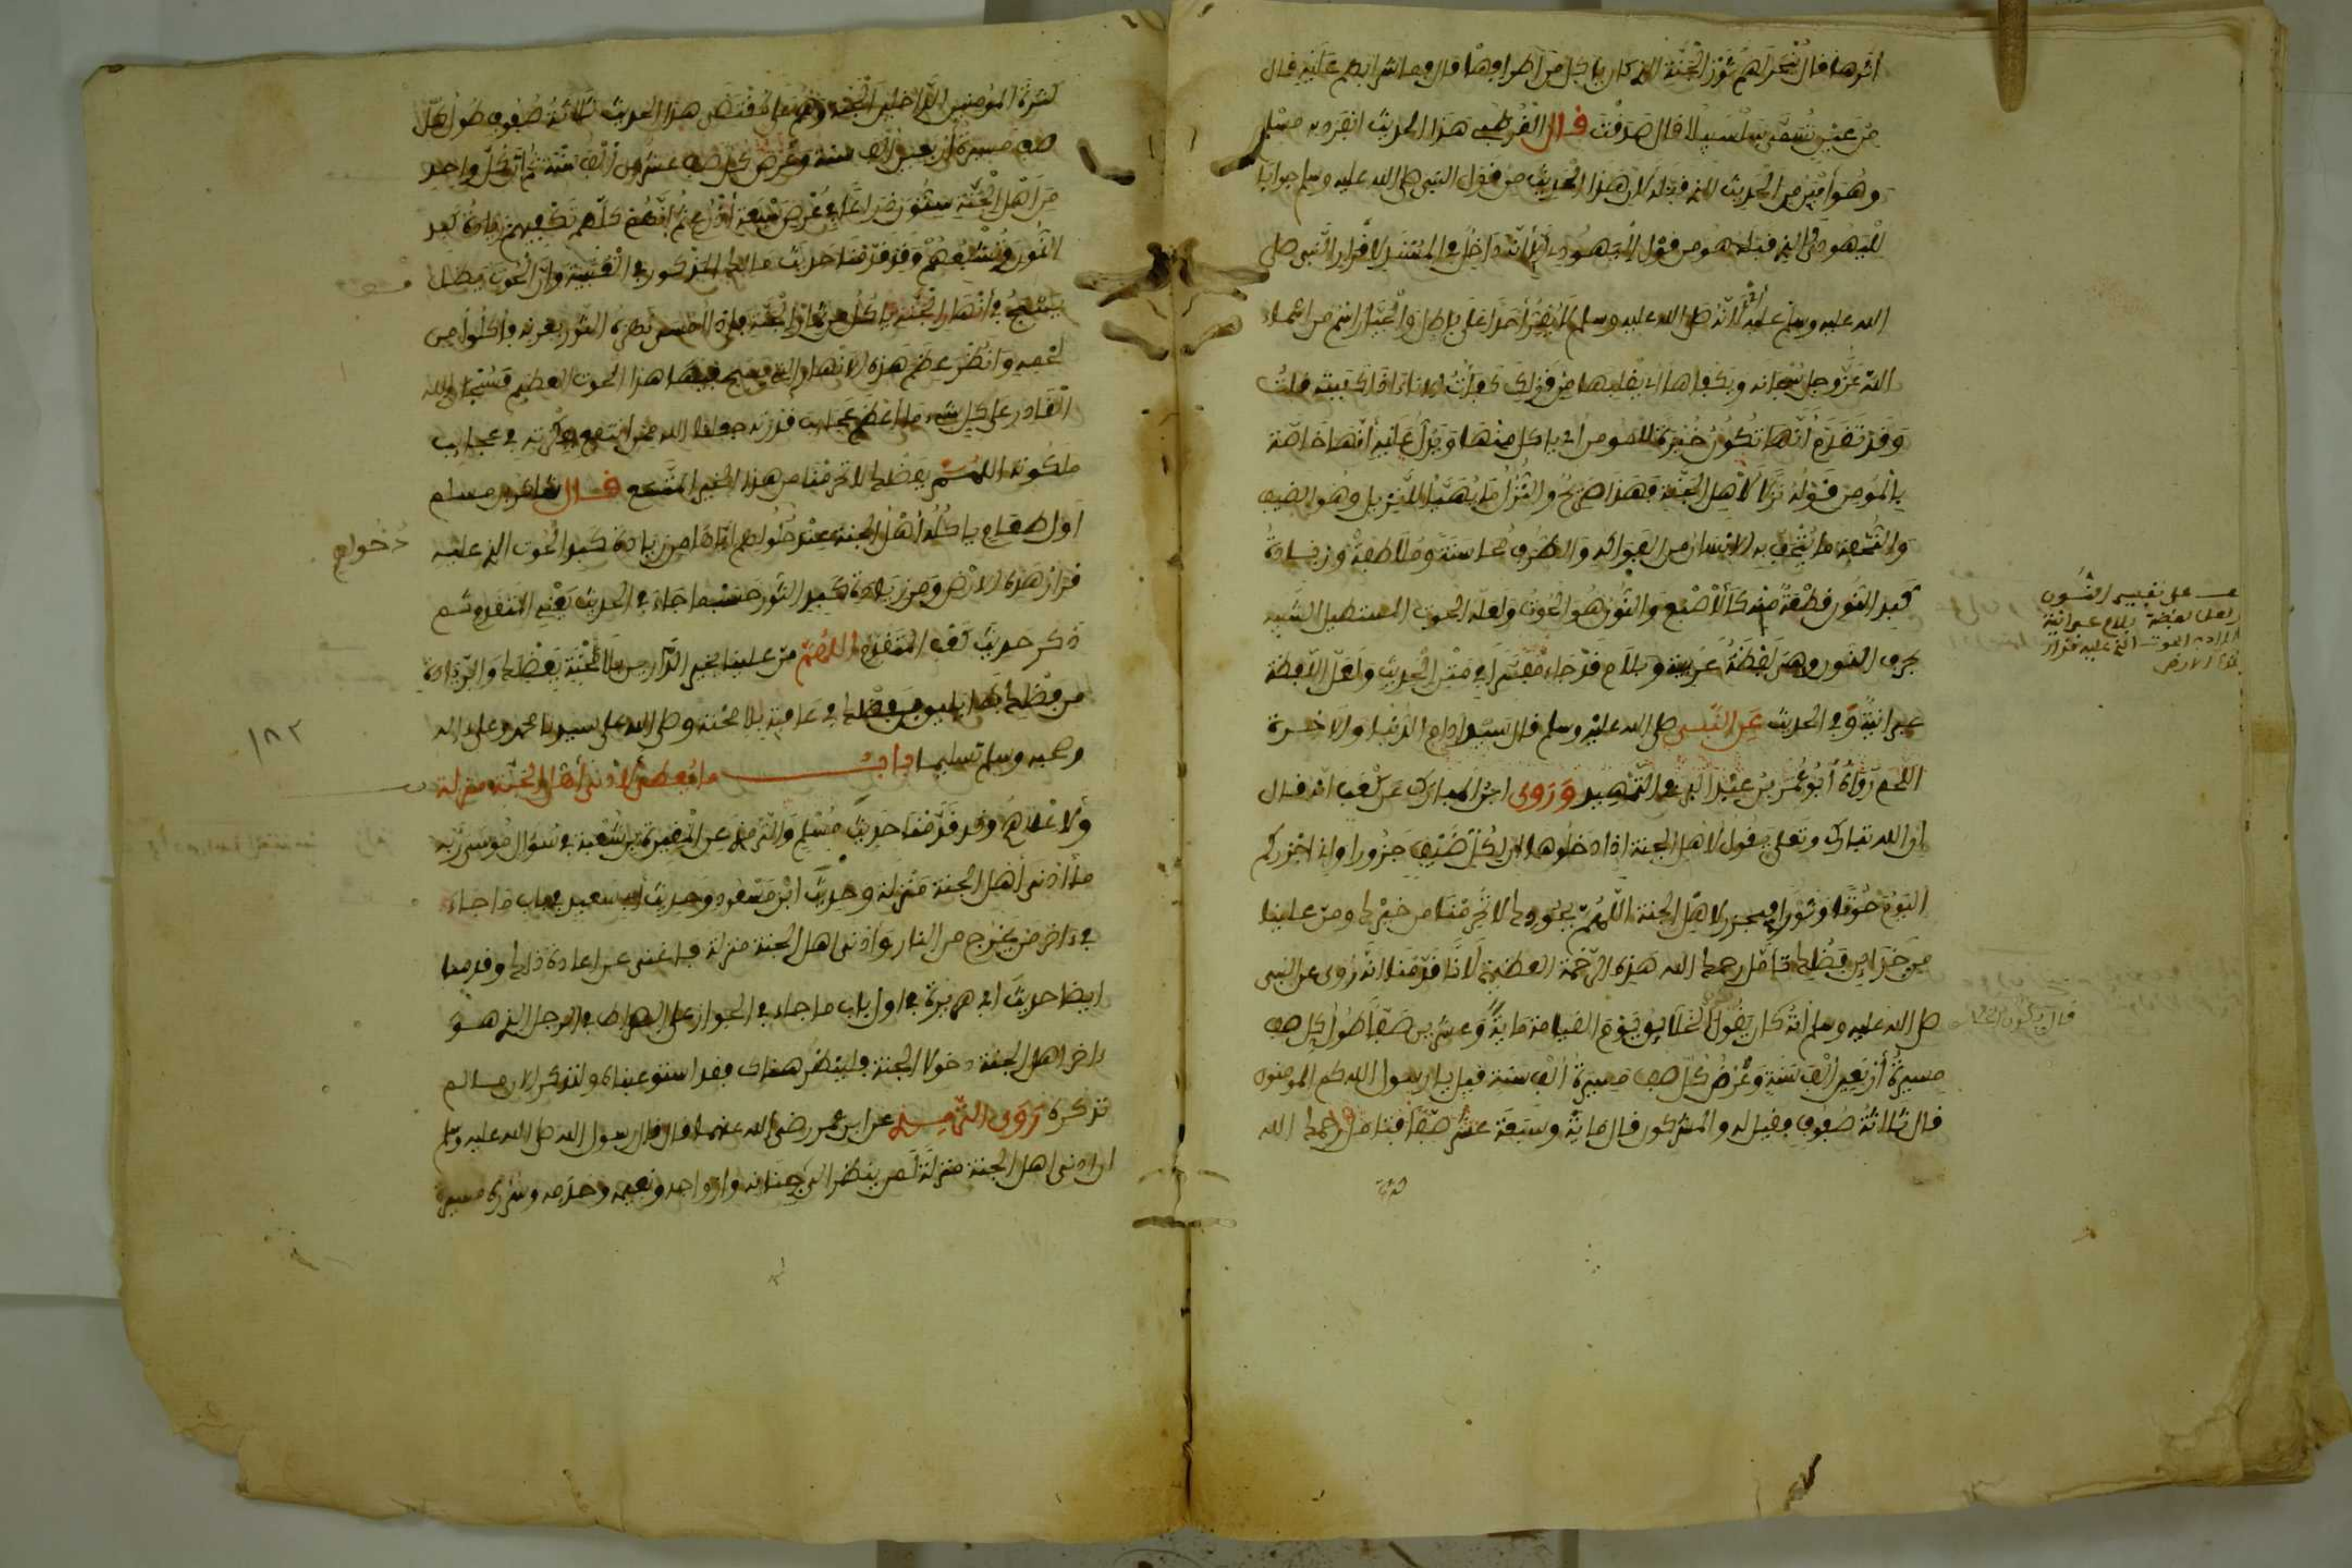 اثرها قال ينحر لهم ثور الجنة الذي كان ياكل من اطرافها قال وما شرابهم عليه قال
من عين تسمى سلسبيلا قال صدقت قال القرطبي هذا الحديث انفرد به مسلم
وهو أبين من الحديث الذي قبله لان هذا الحديث من قول النبي صلى الله عليه وسلم جوابا
لليهودي والذي قبله هو من قول اليهودي لانه داخل في المسند لاقرار النبي صلى
الله عليه وسلم عليه لانه صلى الله عليه وسلم لا يقر أحدا على باطل والجبار اسم من اسماء
الله عز وجل سبحانه ويكفاها اي يقلبها من قولك كفأت الاناء اذا كببته قلت
وقد تقدم أنها تكون خبزة للمومن اي ياكل منها ويدل عليه أنها خاصة
بالمومن قوله نزلا لاهل الجنة وهذا صريح والنزل ما يهيأ للنزيل وهو الضيف
والتحفة ما يتحف به الانسان من الفواكه والطرف محاسنة وملاطفة وزيادة
كبد النون قطعة منه كالأصبع والنون هو الحوت ولعله الحوت المستطيل الشبيه
بحرف النون وهي لفظة عربية وبلام قد جاء مفسرا في متن الحديث ولعل اللفظة
عبرانية وفي الحديث عن النبي صلى الله عليه وسلم قال سيد ادام الدنيا والاخرة
اللحم رواه أبو عمر بن عبد البر في التمهيد وروى ابن المبارك عن كعب انه قال
ان الله تبارك وتعلى يقول لأهل الجنة إذا دخلوها ان لكل ضيف جزورا واني اجزركم
اليوم حوتا وثورا فيجزر لاهل الجنة اللهم بجودك لا تحرمنا من خيرك ومن علينا
من خزاين فضلك تأمل رحمك الله هذه الرحمة العظيمة لأنا قدمنا انه روى عن النبي
صلى الله عليه وسلم أنه كان يقول الخلايق يوم القيامة ماية وعشرين صفا طول كل صف
مسيرة أربعين ألف سنة وعرض كل صف مسيرة ألف سنة قيل يا رسول الله كم المومنون
قال ثلاثة صفوف فقيل له والمشركون قال ماية وسبعة عشر صفا فتأمل رحمك الله
على تفسير النون
لعل لفظة بلام عبرانية
الحوت الذي عليه قرار
هذه الارض
كثرة المومنين الداخلين الجنة وهم على مقتضى هذا الحديث ثلاثة صفوف طول كل
صف مسيرة أربعين ألف سنة وعرض كل صف عشرون ألف سنة ثم ان كل واحد
من أهل الجنة ستون ذراعا في عرض سبعة أذرع ثم انهم كلهم تكفيهم زيادة كبد
النون وتشبعهم وقد قدمنا حديث مالك المذكور في العتبية وان الحوت يظل
يسبح في أنهار الجنة ياكل من ثمار الجنة فاذا امسى نطحه الثور بقرنه فأكلوا من
لحمه وانظر عظم هذه الانهار التي يسبح فيها هذا الحوت العظيم فسبحان الله
القادر على كل شيء ما أعظم عجايب قدرته جعلنا الله ممن انتفع بفكرته في عجايب
ملكوته اللهم بفضلك لا تحرمنا من هذا الخير المتسع قال شاكر بن مسلم
اول طعام ياكله أهل الجنة عند حلولهم اياها من زيادة كبد الحوت الذي عليه
قرار هذه الارض ومن زيادة كبد الثور حسبما جاء في الحديث يعني المتقدم ثم
ذكر حديث كعب المتقدم اللهم من علينا بخير الدارين بالجنة بفضلك والزيادة
من فضلك بما يليق بفضلك في عافية بلا محنة وصلى الله على سيدنا محمد وعلى اله
وصحبه وسلم تسليما باب ما يعطى لأدنى أهل الجنة منزلة
ولا علاهم وقد قدمنا حديث مسلم والترمذي عن المغيرة بن شعبة في سوال موسى ربه
ما أدنى أهل الجنة منزلة وحديث ابن مسعود وحديث أبي سعيد في باب ما جاء
في داخر من يخرج من النار وادنى اهل الجنة منزلة فيما غنى عن اعادة ذلك وقدمنا
ايضا حديث ابي هريرة في اول باب ما جاء في الجواز على الصراط في الرجل الذي هو
داخر اهل الجنة دخولا الجنة فلينظر هناك فقد استوعبناه ولنذكر الان ما لم
نذكره روى الترمذي عن ابن عمر رضي الله عنهما قال قال رسول الله صلى الله عليه وسلم
ان ادنى اهل الجنة منزلة لمن ينظر الى جنانه وازواجه ونعيمه وخدمه وسرره مسيرة
دخولهم
١٨٢